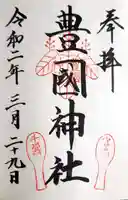 奉拝
豊國神社
令和二年三月二十九日